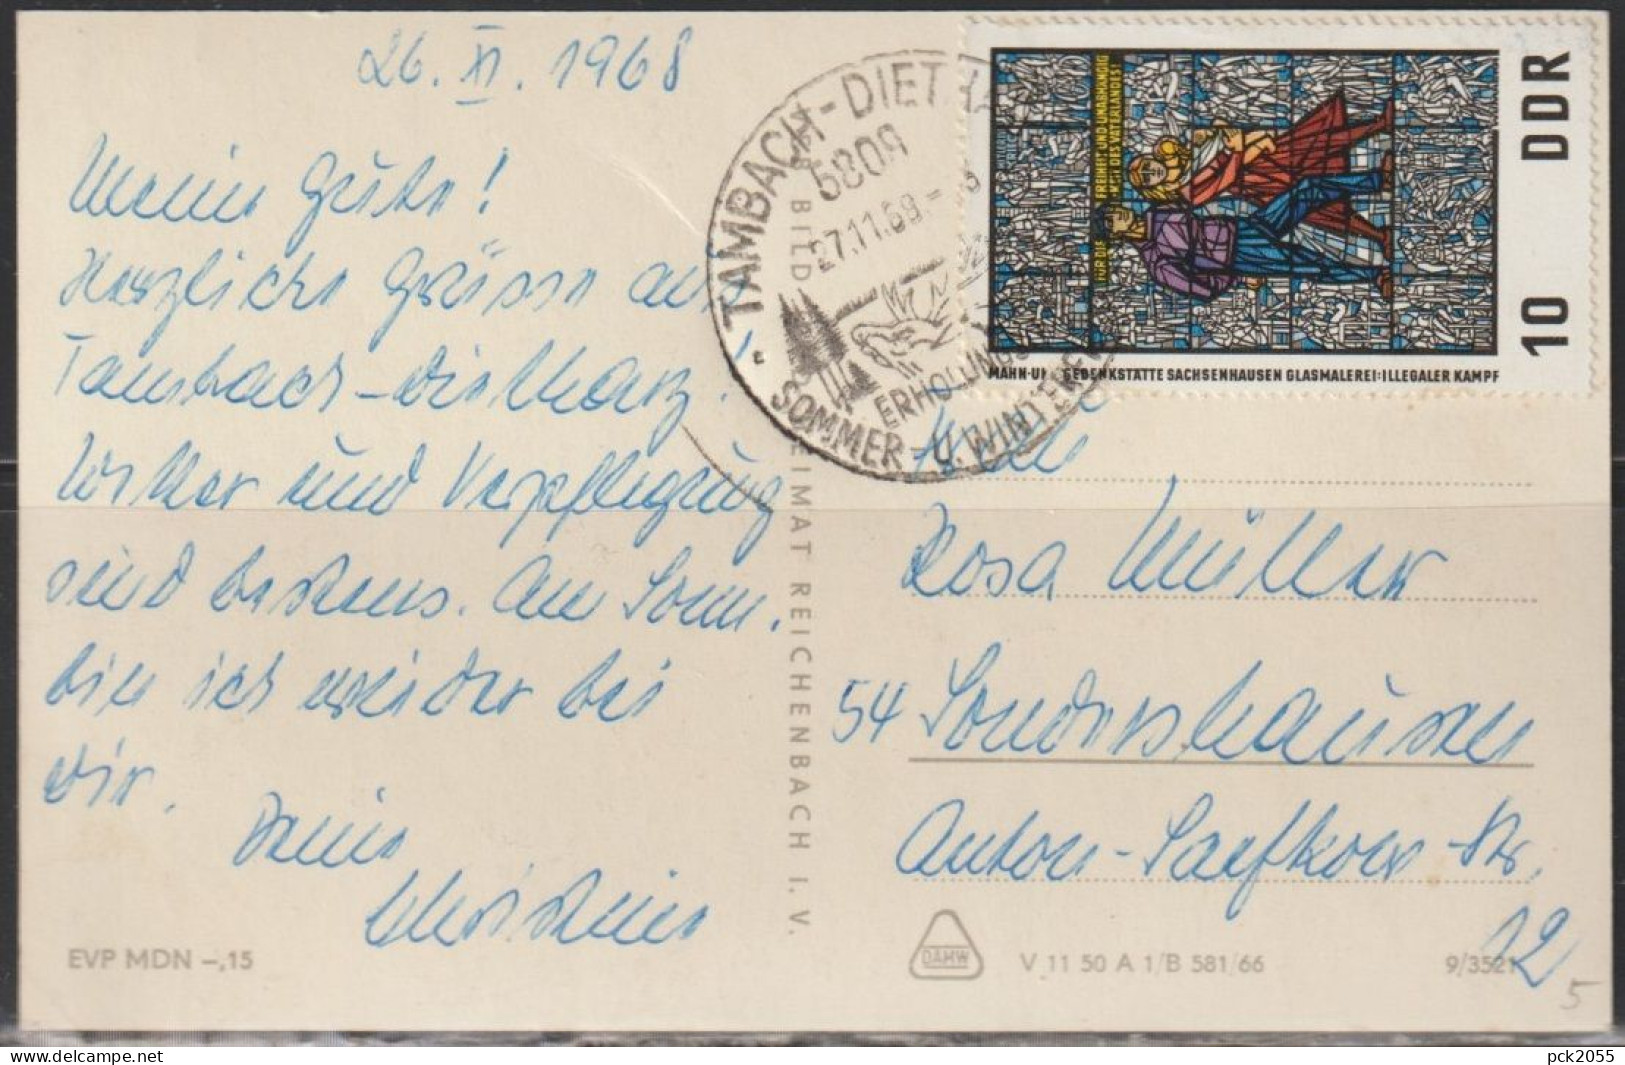 26. XI. 1968
Meine Gute!
Herzliche Grüsse aus
Tambach-Dietharz.
Wetter und Verpflegung
sind bestens. Am Sonn.
bin ich wieder bei
Dir.
Deine
Christine
EVP MDN –,15
BILD HEIMAT REICHENBACH I. V.
TAMBACH-DIETHA
5809
27.11.69.-
ERHOLUNGS
SOMMER - U. WINTER
FÜR DIE FREIHEIT UND UNABHÄNGIG
DES VATERLANDES
MAHN-U GEDENKSTÄTTE SACHSENHAUSEN GLASMALEREI: ILLEGALER KAMPF
10 DDR
Rosa Müller
54 Sondershausen
Anton-Saefkow-Str.
12
DAHW
V 11 50 A 1/B 581/66
9/3521
5
pck2055